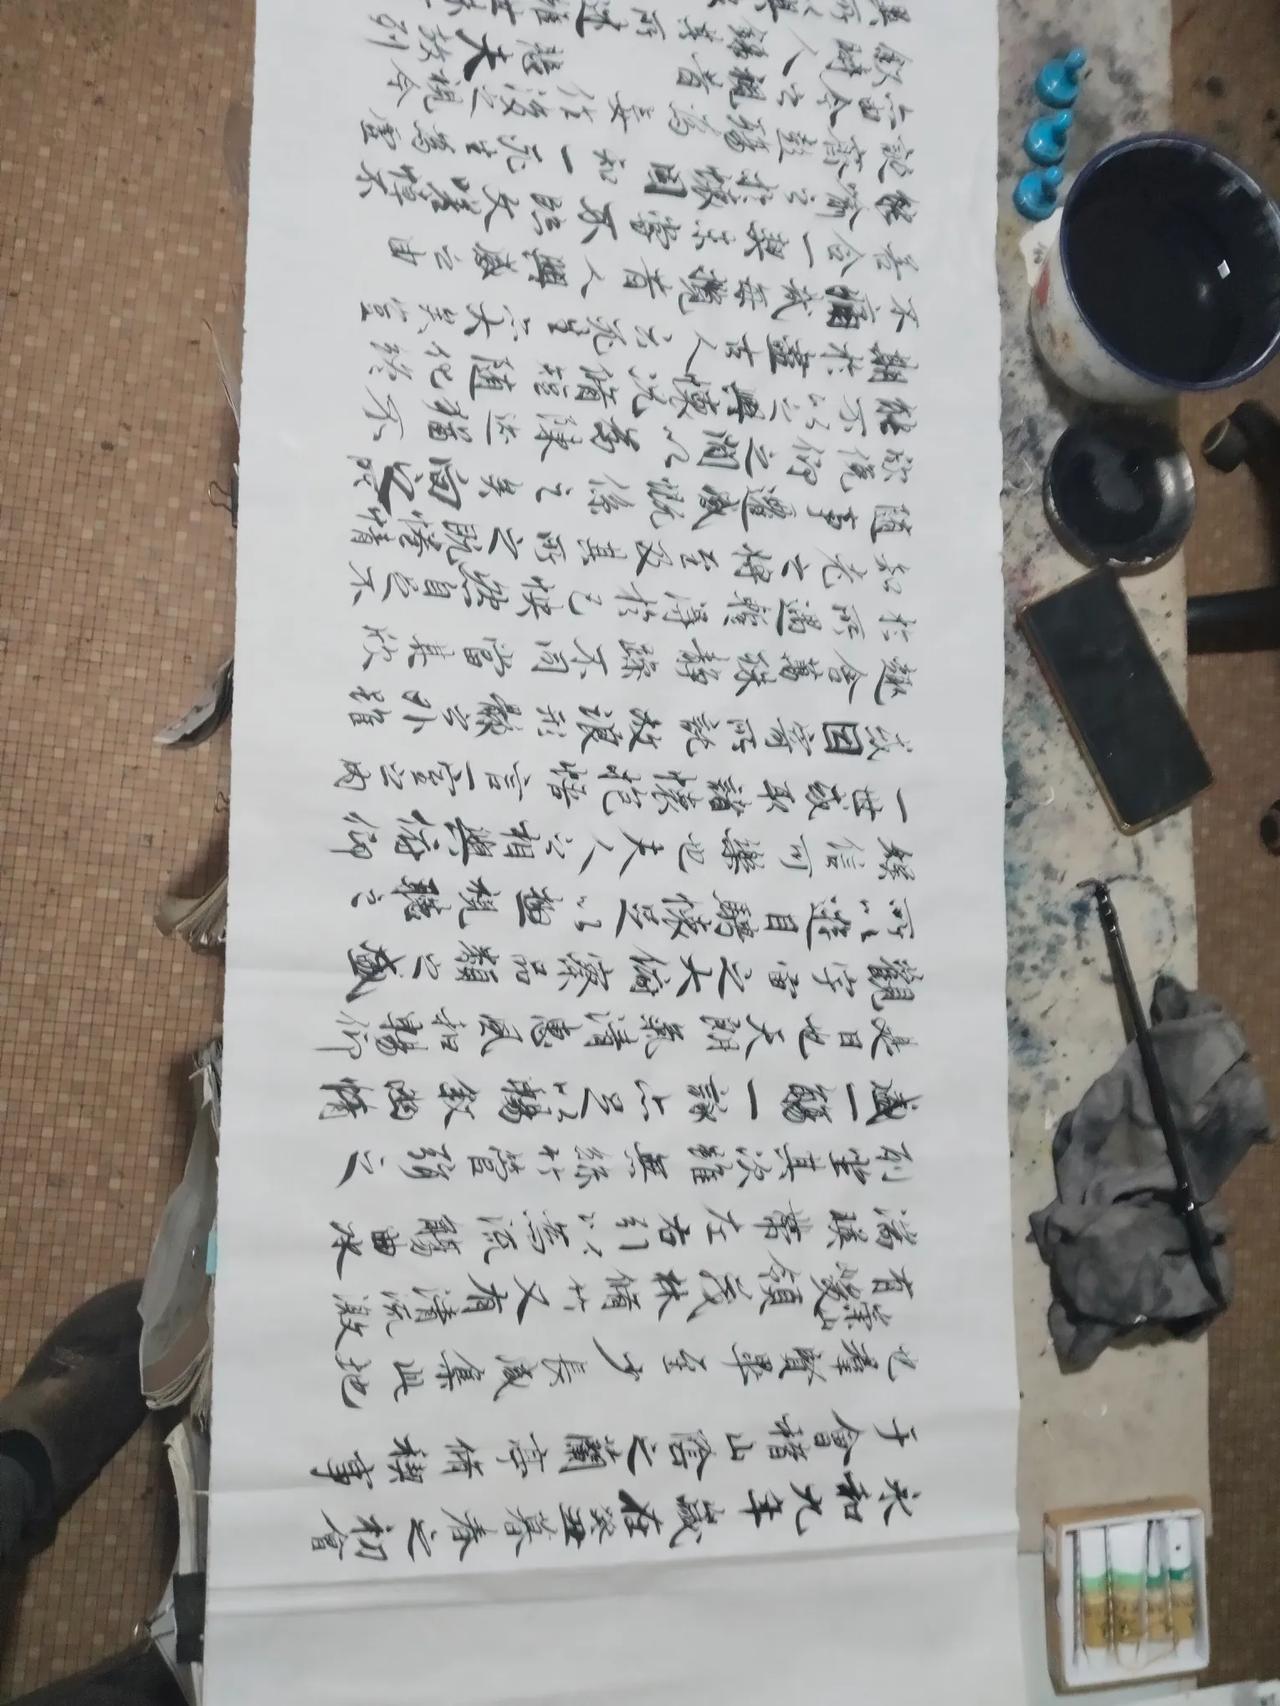 永和九年歲在癸丑暮春之初會
于會稽山陰之蘭亭脩禊事
也羣賢畢至少長咸集此地
有崇山峻領茂林脩竹又有清流激
湍暎帶左右引以為流觴曲水
列坐其次雖無絲竹管弦之
盛一觴一詠亦足以暢敘幽情
是日也天朗氣清惠風和暢仰
觀宇宙之大俯察品類之盛
所以遊目騁懷足以極視聽之
娛信可樂也夫人之相與俯仰
一世或取諸懷抱悟言一室之內
或因寄所託放浪形骸之外雖
趣舍萬殊靜躁不同當其欣
於所遇暫得於己快然自足不
知老之將至及其所之既惓情
隨事遷感慨係之矣向之所
欣俛仰之間以為陳迹猶不
能不以之興懷況脩短隨化終
期於盡古人云死生亦大矣豈
不痛哉每攬昔人興感之由
若合一契未嘗不臨文嗟悼不
能喻之於懷固知一死生為虛
誕齊彭殤為妄作後之視今
亦由今之視昔悲夫故列
敘時人錄其所述雖世殊
異所以興